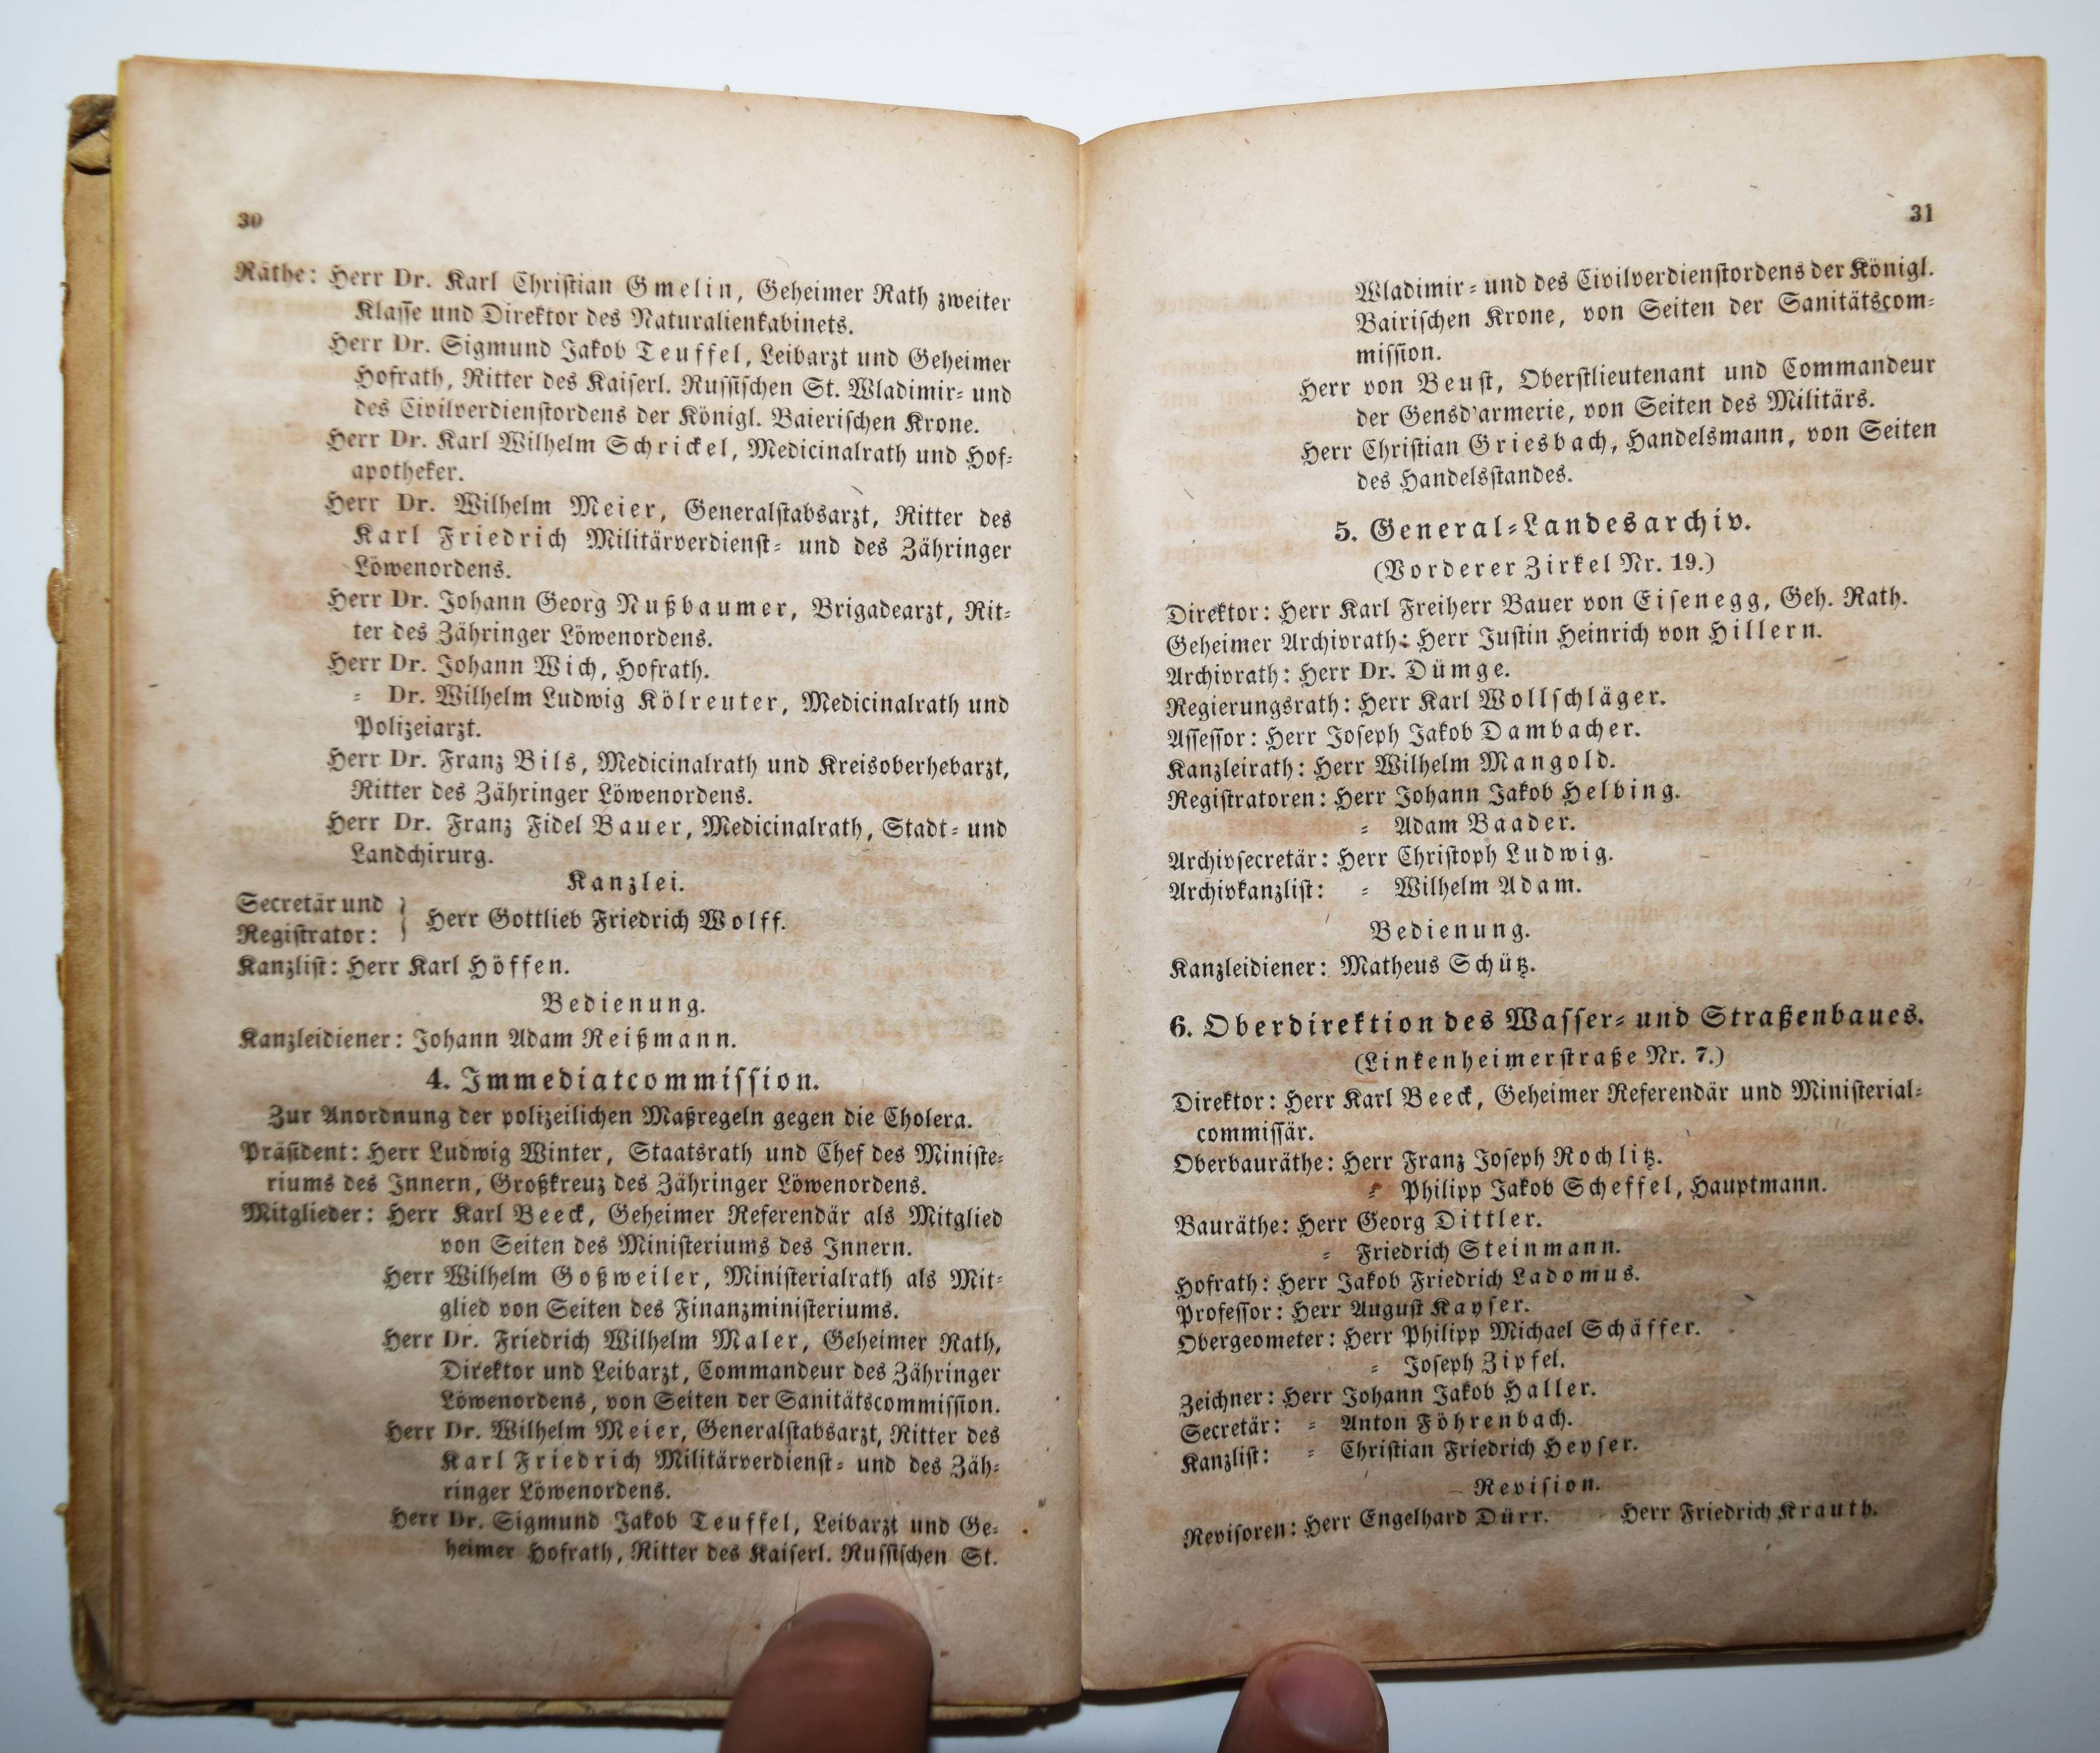 30
Räthe: Herr Dr. Karl Christian Gmelin, Geheimer Rath zweiter
Klasse und Direktor des Naturalienkabinets.
Herr Dr. Sigmund Jakob Teuffel, Leibarzt und Geheimer
Hofrath, Ritter des Kaiserl. Russischen St. Wladimir- und
des Civilverdienstordens der Königl. Baierischen Krone.
Herr Dr. Karl Wilhelm Schrickel, Medicinalrath und Hof-
apotheker.
Herr Dr. Wilhelm Meier, Generalstabsarzt, Ritter des
Karl Friedrich Militärverdienst- und des Zähringer
Löwenordens.
Herr Dr. Johann Georg Nußbaumer, Brigadearzt, Rit-
ter des Zähringer Löwenordens.
Herr Dr. Johann Wich, Hofrath.
= Dr. Wilhelm Ludwig Kölreuter, Medicinalrath und
Polizeiarzt.
Herr Dr. Franz Bils, Medicinalrath und Kreisoberhebarzt,
Ritter des Zähringer Löwenordens.
Herr Dr. Franz Fidel Bauer, Medicinalrath, Stadt- und
Landchirurg.
Kanzlei.
Secretär und
Registrator: } Herr Gottlieb Friedrich Wolff.
Kanzlist: Herr Karl Höffen.
Bedienung.
Kanzleidiener: Johann Adam Reißmann.
4. Immediatcommission.
Zur Anordnung der polizeilichen Maßregeln gegen die Cholera.
Präsident: Herr Ludwig Winter, Staatsrath und Chef des Ministe-
riums des Innern, Großkreuz des Zähringer Löwenordens.
Mitglieder: Herr Karl Beeck, Geheimer Referendär als Mitglied
von Seiten des Ministeriums des Innern.
Herr Wilhelm Goßweiler, Ministerialrath als Mit-
glied von Seiten des Finanzministeriums.
Herr Dr. Friedrich Wilhelm Maler, Geheimer Rath,
Direktor und Leibarzt, Commandeur des Zähringer
Löwenordens, von Seiten der Sanitätscommission.
Herr Dr. Wilhelm Meier, Generalstabsarzt, Ritter des
Karl Friedrich Militärverdienst- und des Zäh-
ringer Löwenordens.
Herr Dr. Sigmund Jakob Teuffel, Leibarzt und Ge-
heimer Hofrath, Ritter des Kaiserl. Russischen St.
31
Wladimir- und des Civilverdienstordens der Königl.
Bairischen Krone, von Seiten der Sanitätscom-
mission.
Herr von Beust, Oberstlieutenant und Commandeur
der Gensd'armerie, von Seiten des Militärs.
Herr Christian Griesbach, Handelsmann, von Seiten
des Handelsstandes.
5. General-Landesarchiv.
(Vorderer Zirkel Nr. 19.)
Direktor: Herr Karl Freiherr Bauer von Eisenegg, Geh. Rath.
Geheimer Archivrath: Herr Justin Heinrich von Hillern.
Archivrath: Herr Dr. Dümge.
Regierungsrath: Herr Karl Wollschläger.
Assessor: Herr Joseph Jakob Dambacher.
Kanzleirath: Herr Wilhelm Mangold.
Registratoren: Herr Johann Jakob Helbing.
= Adam Baader.
Archivsecretär: Herr Christoph Ludwig.
Archivkanzlist: = Wilhelm Adam.
Bedienung.
Kanzleidiener: Matheus Schütz.
6. Oberdirektion des Wasser- und Straßenbaues.
(Linkenheimerstraße Nr. 7.)
Direktor: Herr Karl Beeck, Geheimer Referendär und Ministerial-
commissär.
Oberbauräthe: Herr Franz Joseph Rochlitz.
= Philipp Jakob Scheffel, Hauptmann.
Bauräthe: Herr Georg Dittler.
= Friedrich Steinmann.
Hofrath: Herr Jakob Friedrich Ladomus.
Professor: Herr August Kayser.
Obergeometer: Herr Philipp Michael Schäffer.
= Joseph Zipfel.
Zeichner: Herr Johann Jakob Haller.
Secretär: = Anton Föhrenbach.
Kanzlist: = Christian Friedrich Heyser.
Revision.
Revisoren: Herr Engelhard Dürr. Herr Friedrich Krauth.